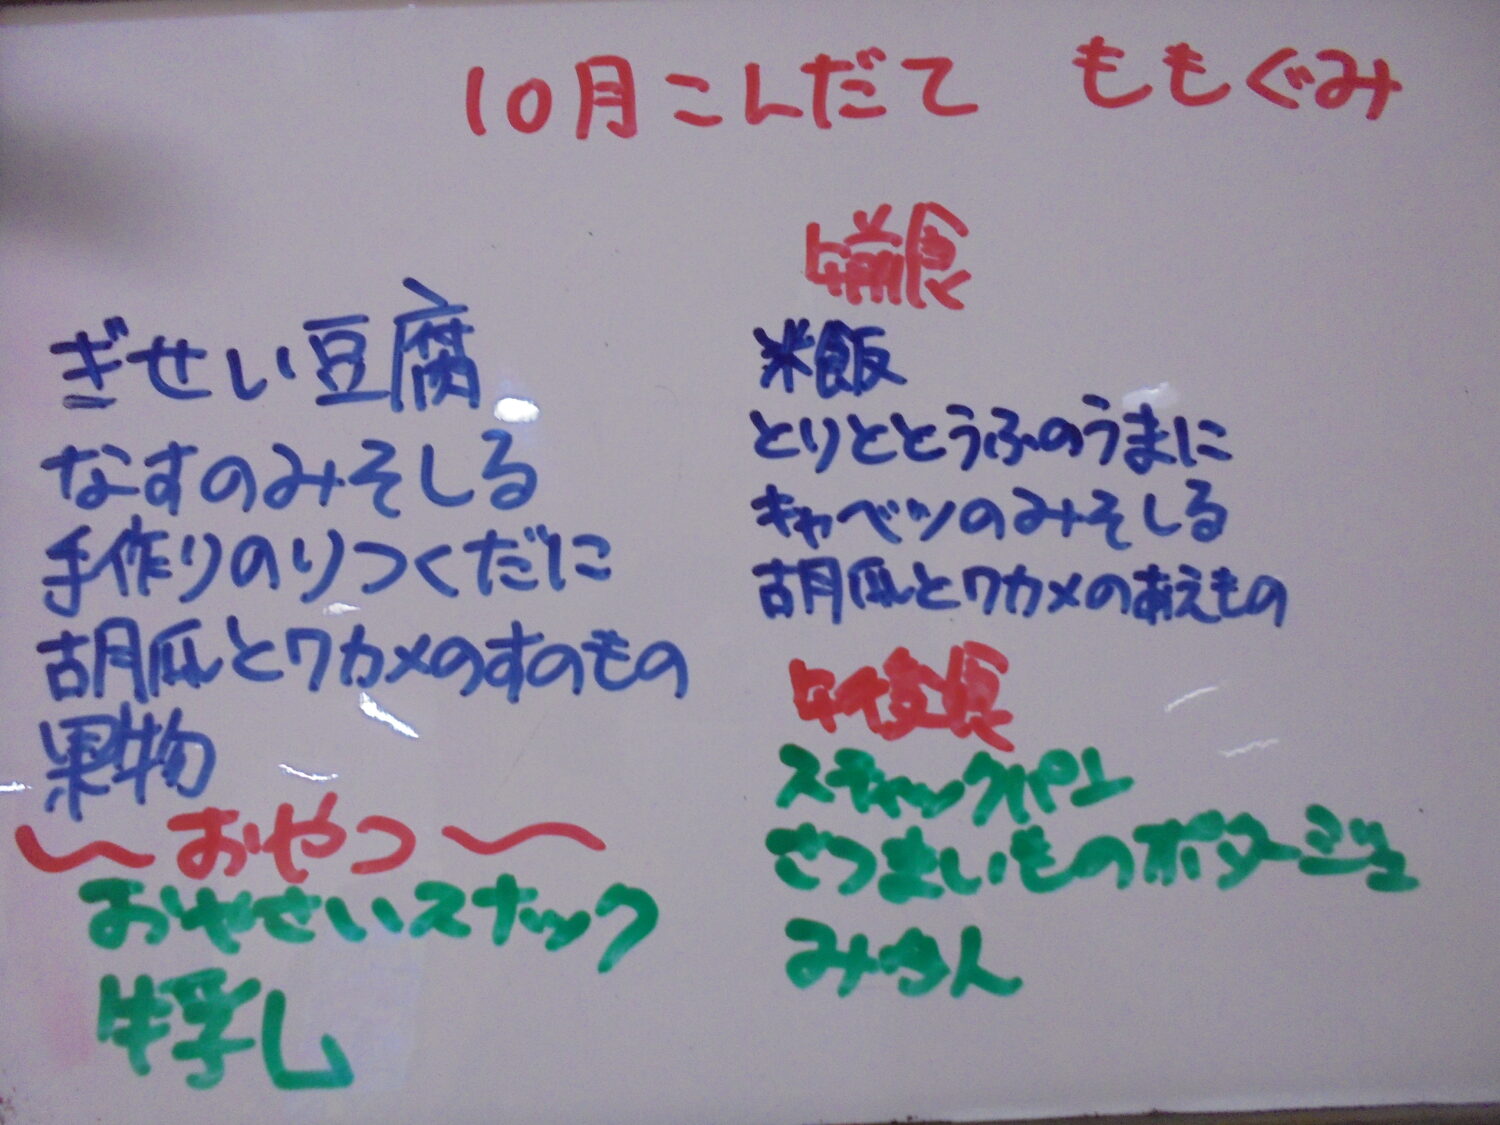 10月こんだて ももぐみ
ぎせい豆腐
なすのみそしる
手作りのりつくだに
胡瓜とワカメのすのもの
果物
〜おやつ〜
おやせいスナック
牛乳
午前食
米飯
とりととうふのうまに
キャベツのみそしる
胡瓜とワカメのあえもの
午後食
スティックパン
さつまいものポタージュ
みかん